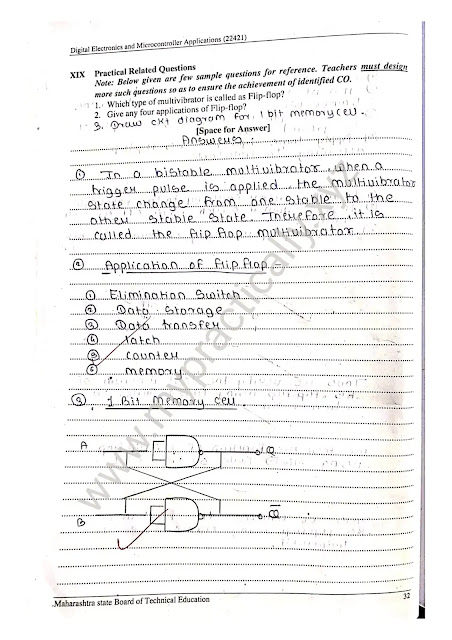 Digital Electronics and Microcontroller Applications (22421)
XIX Practical Related Questions
Note: Below given are few sample questions for reference. Teachers must design
more such questions so as to ensure the achievement of identified CO.
1. Which type of multivibrator is called as Flip-flop?
2. Give any four applications of Flip-flop?
3. Draw ckt diagram for 1 bit memory cell.
[Space for Answer]
Answers :
① In a bistable multivibrator when a
trigger pulse is applied the multivibrator
state change from one stable to the
other stable state. Therefore it is
called the flip flop multivibrator.
② Application of flip flop
① Elimination Switch
② Data storage
③ Data transfer
④ latch
⑤ counter
⑥ memory
③ 1 Bit memory cell
A Q
B Q̅
www.mypractically.xyz
Maharashtra state Board of Technical Education 32